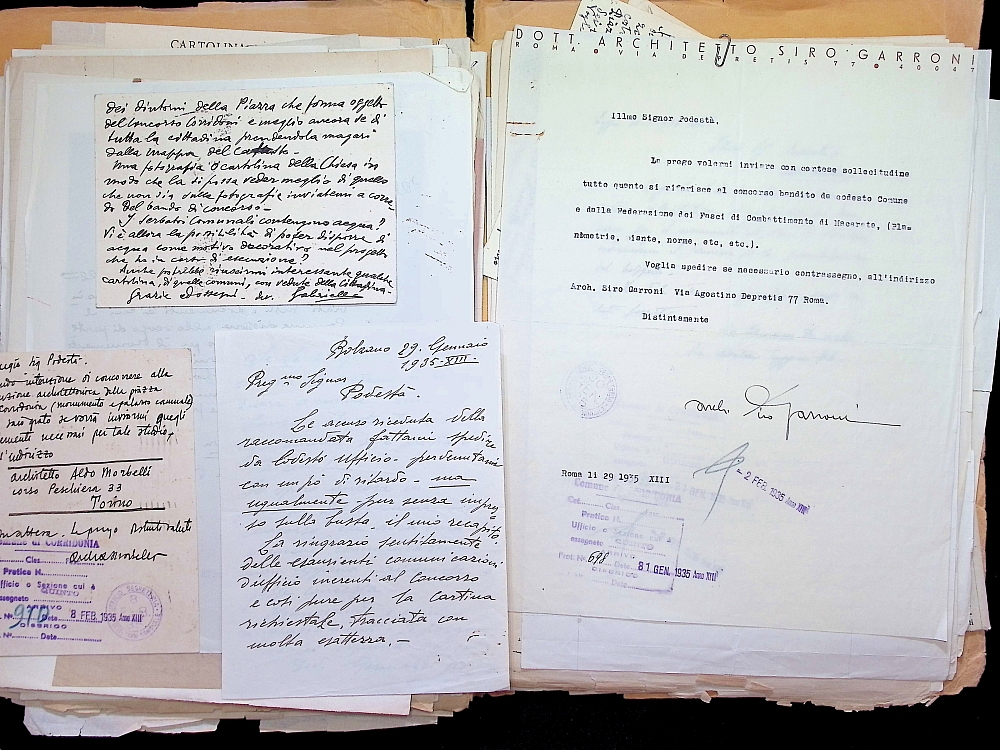 CARTOLINA
dei dintorni della Piazza che forma oggetto
del Concorso Corridoni e meglio ancora se di
tutta la cittadina prendendola magari
dalla mappa del
Una fotografia o cartolina della Chiesa in
modo che la si possa veder meglio di quello
che non sia dalle fotografie inviatemi a corre
do del bando di concorso.-
I serbatoi Comunali contengono acqua?
Vi è allora la possibilità di poter disporre di
acqua come motivo decorativo nel progetto
che ho in corso di esecuzione?
Anche potrebbe riuscirmi interessante qualche
cartolina, di quelle comuni, con vedute della Cittadina-
Grazie ed ossequi - dev. Gabriella
Podestà.
intenzione di concorrere alla
architettonica della piazza
Corridonia (monumento e palazzo comunale)
sarò grato se vorrà inviarmi quegli
necessari per tale studio,
architetto Aldo Morbelli
corso Peschiera 33
Torino
di CORRIDONIA
Cles.
Pratica N.
Ufficio o Sezione cui è
assegnato
N° 970 Data 8 FEB. 1935 Anno XIII
N. Data
Bolzano 29. Gennaio
1935-XIII.-
Preg.mo Signor
Podestà.
Le accuso ricevuta della
raccomandata fattami spedire
da codesto Ufficio - pervenutami
con un pò di ritardo - ma
ugualmente pur senza impres
so sulla busta, il mio recapito.
La ringrazio sentitamente
delle esaurienti comunicazioni
d'ufficio inerenti al Concorso
e così pure per la cartina
richiestale, tracciata con
molta esattezza.-
DOTT. ARCHITETTO SIRO GARRONI
ROMA • VIA DEPRETIS 77 • 40047
Illmo Signor Podestà,
La prego volermi inviare con cortese sollecitudine
tutto quanto si riferisce al concorso bandito da codesto Comune
e dalla Federazione dei Fasci di Combattimento di Macerata, (Pla-
nimetrie, piante, norme, etc, etc.).
Voglia spedire se necessario contrassegno, all'indirizzo
Arch. Siro Garroni Via Agostino Depretis 77 Roma.
Distintamente
Arch. Siro Garroni
Roma li 29 1935 XIII
- 2 FEB. 1935 Anno XIII
Comune di CORRIDONIA
Cat.
Pratica N.
Ufficio o Sezione cui è
assegnato
Prot. N° 698 Data 31 GEN. 1935 Anno XIII